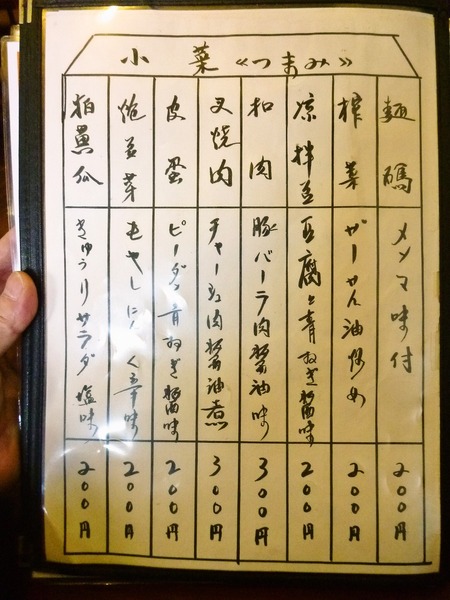 小菜《つまみ》
麺碼
メンマ味付
200円
榨菜
ザーサイ油炒め
200円
涼拌豆
豆腐と青ねぎ醤味
200円
扣肉
豚バーラ肉醤油味
300円
叉焼肉
チャーシュ肉醤油煮
300円
皮蛋
ピータン青ねぎ醤味
200円
炮豆芽
もやしにんにく辛味
200円
拍黄瓜
きゅうりサラダ塩味
200円